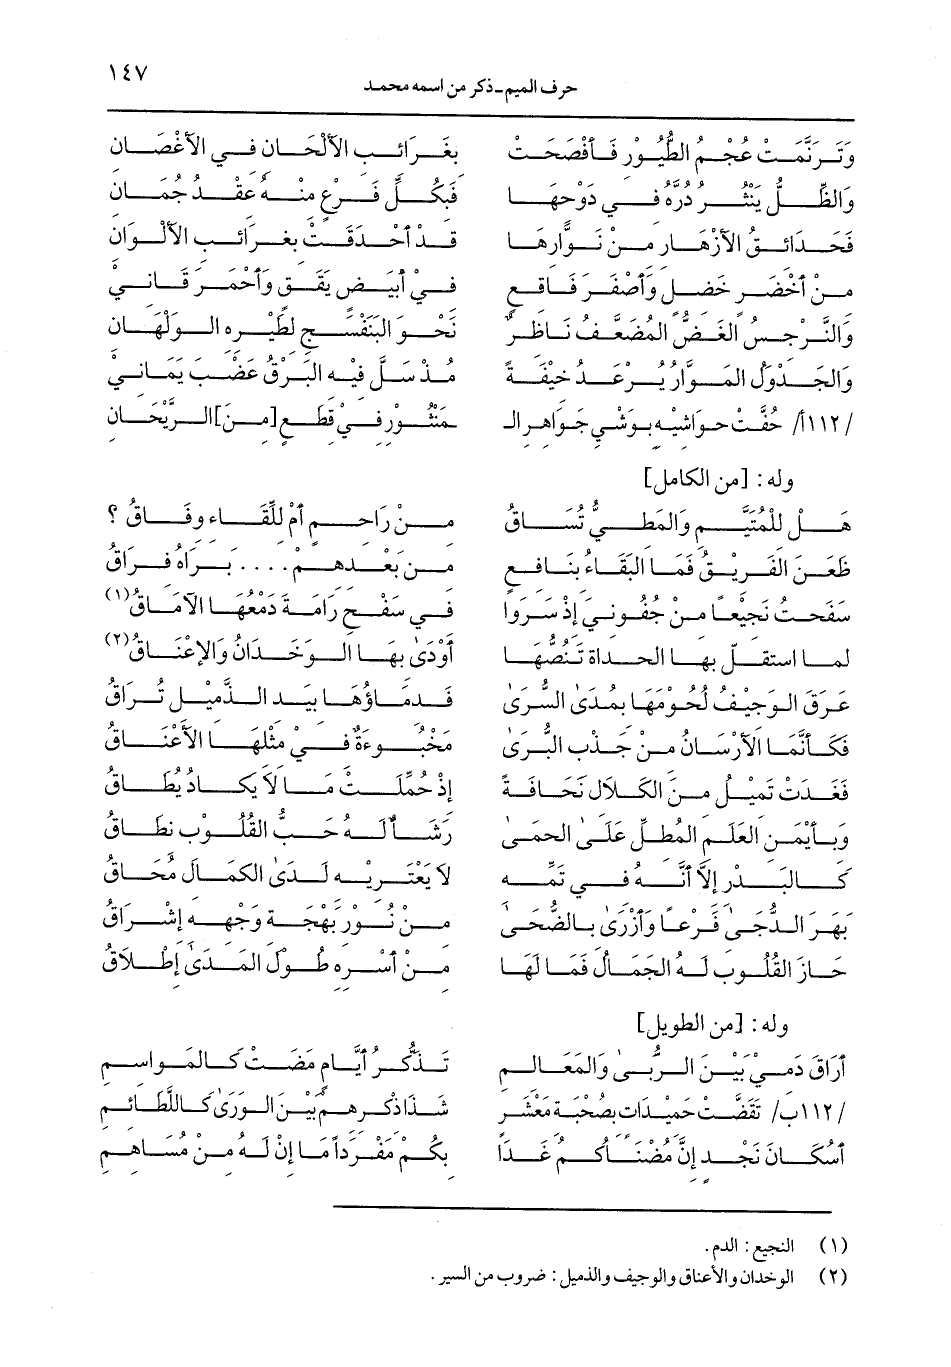 حرف الميم ـ ذكر من اسمه محمد ١٤٧
وَتَرَنَّمَتْ عُجْمُ الطُّيُورِ فَأَفْصَحَتْ بِغَرَائِبِ الأَلْحَانِ فِي الأَغْصَانِ
وَالظِّلُّ يَنْثُرُ دُرَّهُ فِي دَوْحِهَا فَبِكُلِّ فَرْعٍ مِنْهُ عِقْدُ جُمَانِ
فَحَدَائِقُ الأَزْهَارِ مِنْ نَوَّارِهَا قَدْ أَحْدَقَتْ بِغَرَائِبِ الأَلْوَانِ
مِنْ أَخْضَرٍ خَضِلٍ وَأَصْفَرَ فَاقِعٍ فِي أَبْيَضٍ يَقَقٍ وَأَحْمَرَ قَانِيْ
وَالنَّرْجِسُ الغَضُّ المُضَعَّفُ نَاظِرٌ نَحْوَ البَنَفْسَجِ نَظِيرِهِ الوَلْهَانِ
وَالجَدْوَلُ المَوَّارُ يُرْعَدُ خِيْفَةً مُذْ سَلَّ فِيْهِ البَرْقُ عَضْبَ يَمَانِيْ
/١١٢أ/ حُفَّتْ حَوَاشِيْهِ بِوَشْيِ جَوَاهِرِ الـ ـمَنْثُورِ فِيْ قِطَعٍ [مِنَ] الرَّيْحَانِ
وله: [من الكامل]
هَلْ لِلْمُتَيَّمِ وَالمَطِيُّ تُسَاقُ مِنْ رَاحِمٍ أَمْ لِلِّقَاءِ وِفَاقُ؟
ظَعَنَ الفَرِيْقُ فَمَا البَقَاءُ بِنَافِعٍ مِنْ بَعْدِهِمْ .... بَرَاهُ فِرَاقُ
سَفَحَتْ نَجِيْعاً مِنْ جُفُونِيَ إِذْ سَرَوا فِي سَفْحِ رَامَةَ دَمْعَهَا الآمَاقُ(١)
لما استقلَّ بها الحداة تنصُّهَا أَوْدَىٰ بِهَا الوَخَدَانُ وَالإِعْنَاقُ(٢)
عَرَقَ الوَجِيْفُ لُحُومَهَا بِمُدَىٰ السُّرَىٰ فَدِمَاؤُهَا بِيَدِ الذَّمِيْلِ تُرَاقُ
فَكَأَنَّمَا الأَرْسَانُ مِنْ جَذْبِ البُرَىٰ مَخْبُوءَةٌ فِيْ مِثْلِهَا الأَعْنَاقُ
فَغَدَتْ تَمِيْلُ مِنَ الكَلَالِ نَحَافَةً إِذْ حُمِّلَتْ مَا لَا يَكَادُ يُطَاقُ
وَبِأَيْمَنِ العَلَمِ المُطِلِّ عَلَىٰ الحِمَىٰ رَشَأٌ لَهُ حَبُّ القُلُوبِ نِطَاقُ
كَالبَدْرِ إِلَّا أَنَّهُ فِي تَمِّهِ لَا يَعْتَرِيْهِ لَدَىٰ الكَمَالِ مُحَاقُ
بَهَرَ الدُّجَىٰ فَرْعاً وَأَزْرَىٰ بِالضُّحَىٰ مِنْ نُورِ بَهْجَةِ وَجْهِهِ إِشْرَاقُ
حَازَ القُلُوبَ لَهُ الجَمَالُ فَمَا لَهَا مِنْ أَسْرِهِ طُولَ المَدَىٰ إِطْلَاقُ
وله: [من الطويل]
أَرَاقَ دَمِيْ بَيْنَ الرُّبَىٰ وَالمَعَالِمِ تَذَكُّرُ أَيَّامٍ مَضَتْ كَالمَوَاسِمِ
/١١٢ب/ تَقَضَّتْ حَمِيْدَاتٍ بِصُحْبَةِ مَعْشَرٍ شَذَا ذِكْرِهِمْ بَيْنَ الوَرَىٰ كَاللَّطَائِمِ
أَسُكَّانَ نَجْدٍ إِنَّ مُضْنَاكُمُ غَدَا بِكُمْ مُفْرَداً مَا إِنْ لَهُ مِنْ مُسَاهِمِ
(١) النجيع: الدم.
(٢) الوخدان والأعناق والوجيف والذميل: ضروب من السير.